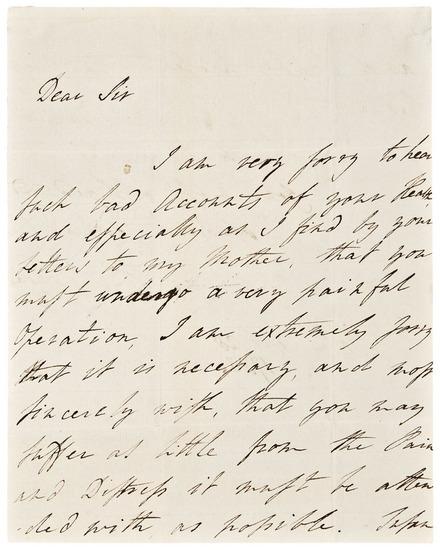 Dear Sir
I am very sorry to hear
such bad Accounts of your Health
and especially as I find by your
letters to my Mother, that you
must undergo a very painful
Operation, I am extremely sorry
that it is necessary, and most
sincerely wish, that you may
suffer as little from the Pain
and Distress it must be atten
ded with as possible.